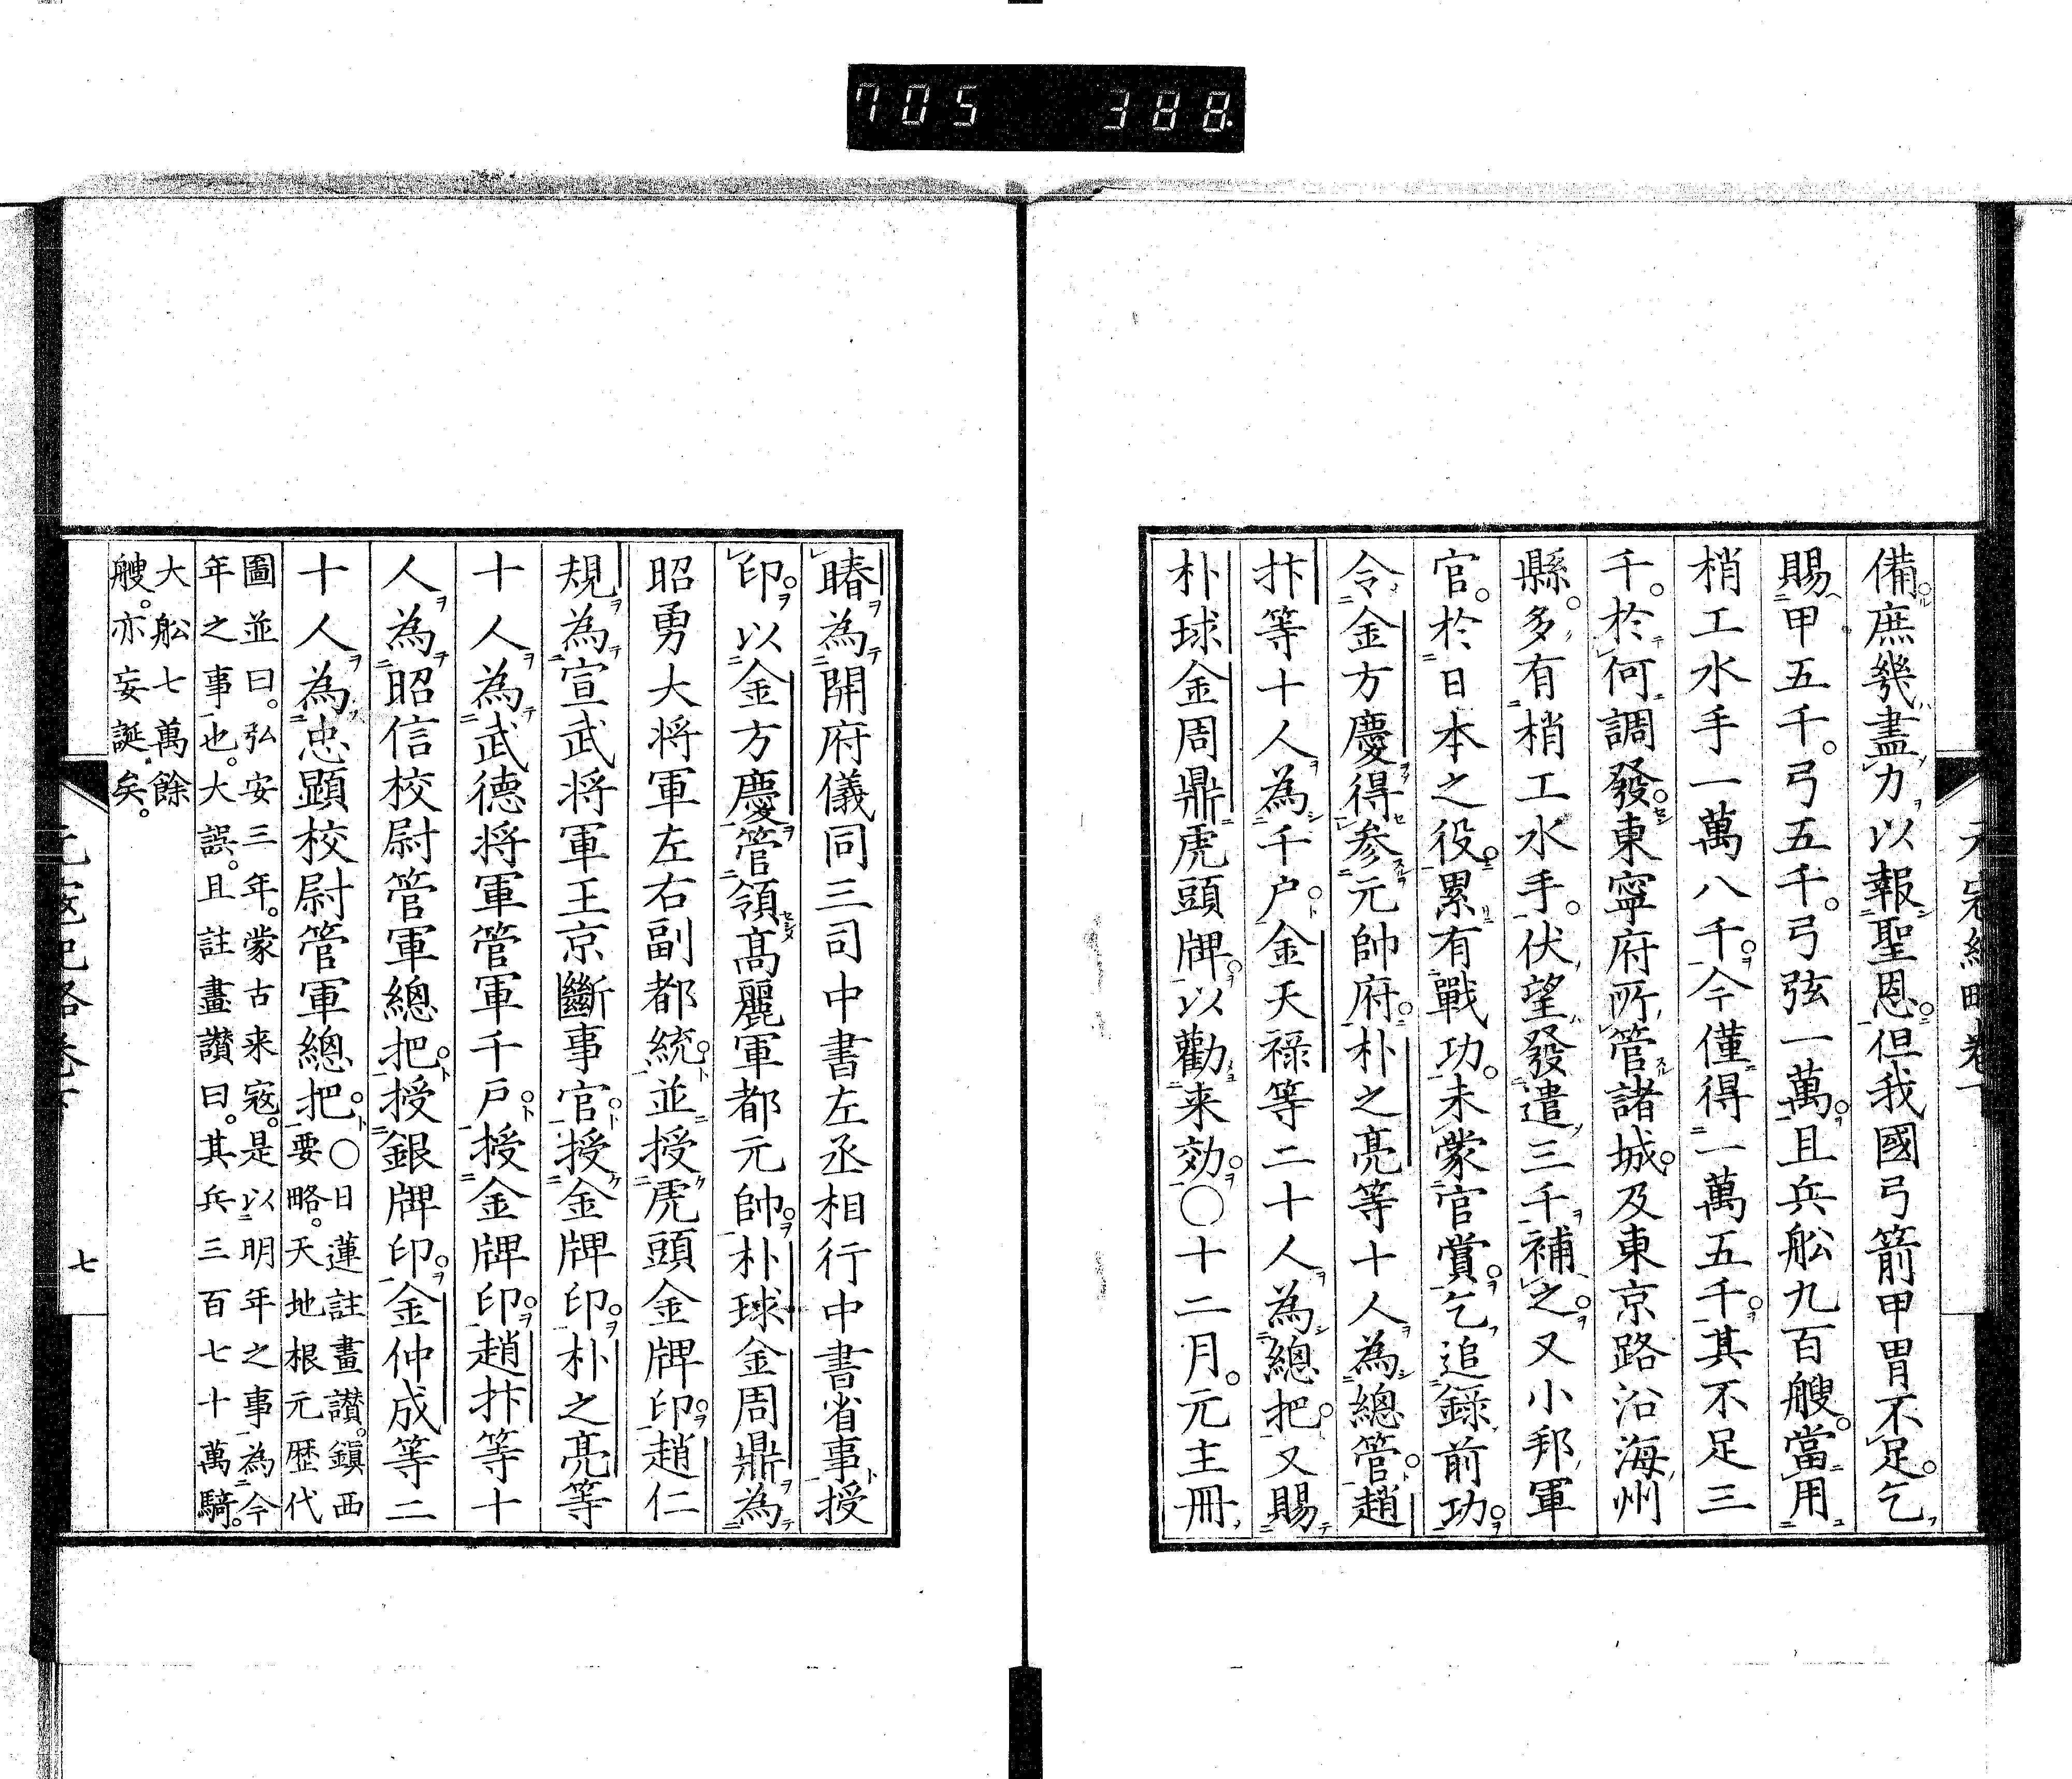 705 388
備庶幾盡力以報聖恩但我國弓箭甲冑不足乞
賜甲五千弓五千弓弦一萬且兵舩九百艘當用
梢工水手一萬八千今僅得一萬五千其不足三
千於何調發東寧府所管諸城及東京路沿海州
縣多有梢工水手伏望發遣三千補之又小邦軍
官於日本之役累有戰功未蒙官賞乞追錄前功
令金方慶得参元帥府朴之亮等十人為總管趙
抃等十人為千户金天祿等二十人為總把又賜
朴球金周鼎虎頭牌以勸来効〇十二月元主冊
賰為開府儀同三司中書左丞相行中書省事授
印以金方慶管領高麗軍都元帥朴球金周鼎為
昭勇大将軍左右副都統並授虎頭金牌印趙仁
規為宣武将軍王京斷事官授金牌印朴之亮等
十人為武德将軍管軍千戸授金牌印趙抃等十
人為昭信校尉管軍總把授銀牌印金仲成等二
十人為忠顕校尉管軍總把〇日蓮註畫讃。鎭西
要略。天地根元歴代
圖並曰。弘安三年。蒙古来寇。是以明年之事為今
年之事也。大誤。且註畫讃曰。其兵三百七十萬騎。
大舩七萬餘
艘。亦妄誕矣。
七